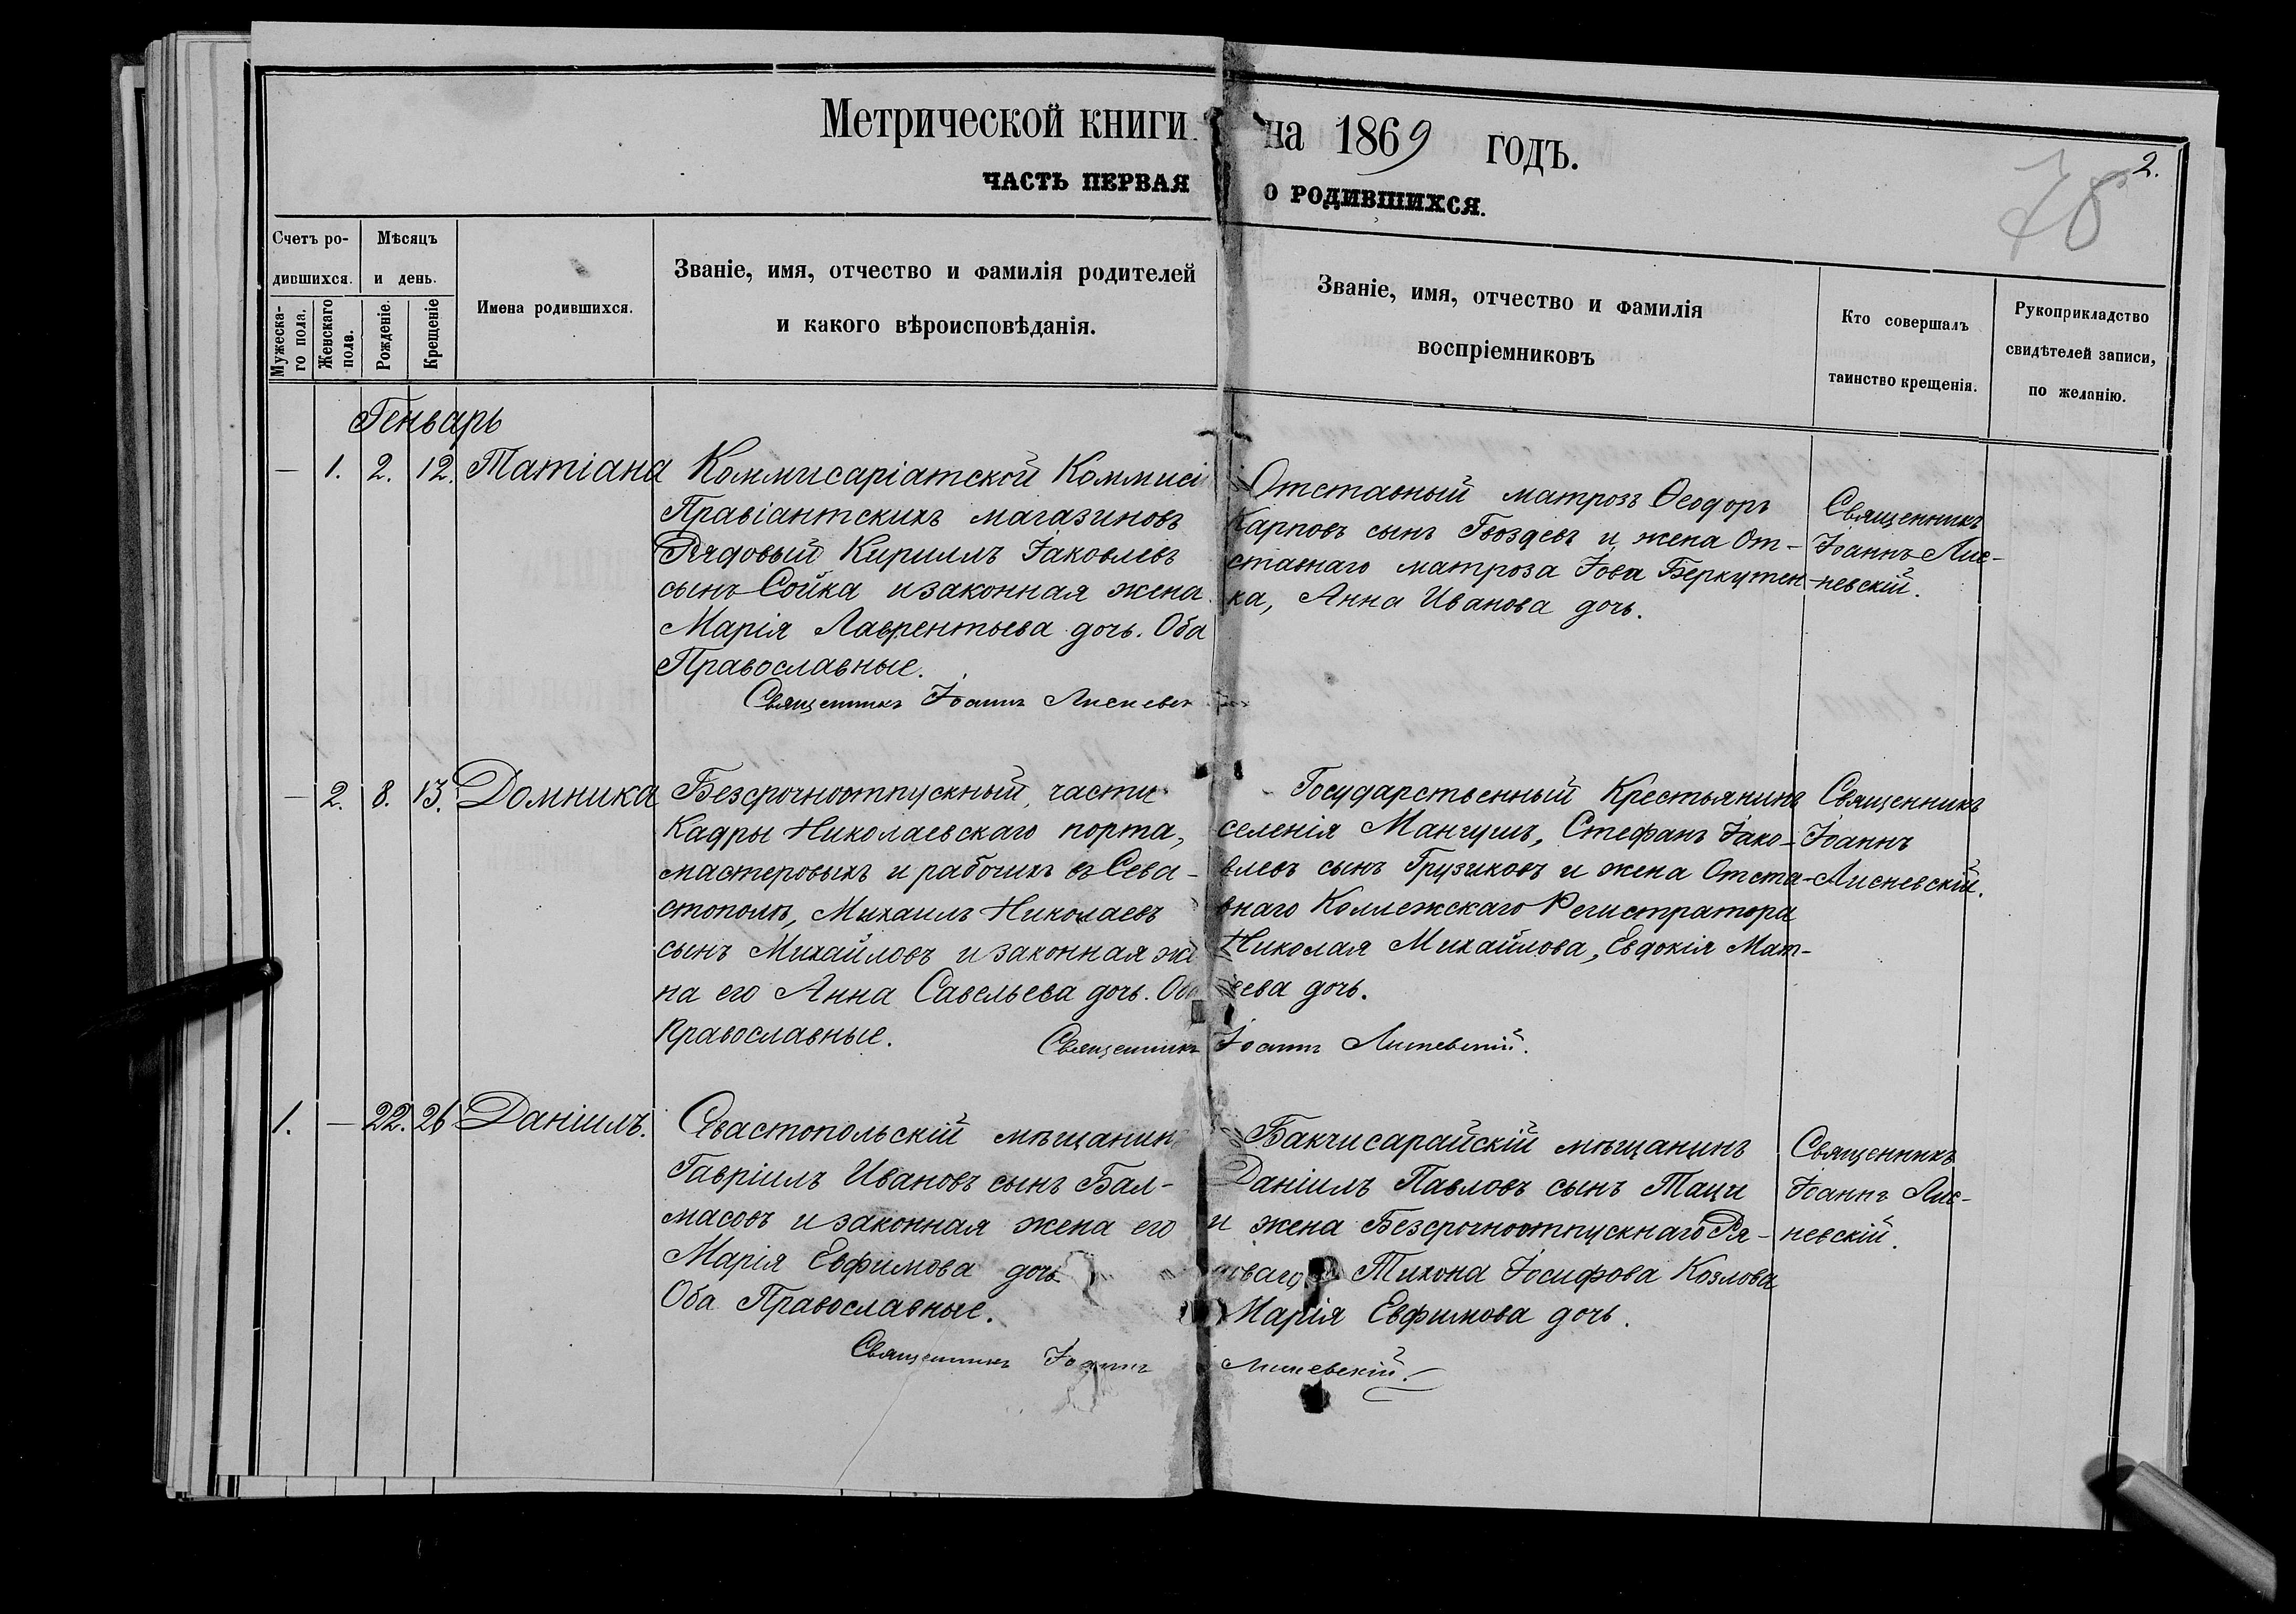 Метрической книги на 1869 годъ.
ЧАСТЬ ПЕРВАЯ О РОДИВШИХСЯ.
2.
78
Счетъ ро-
дившихся.
Мужеска-
го пола.
Женскаго
пола.
Мѣсяцъ
и день.
Рожденіе.
Крещеніе
Имена родившихся.
Званіе, имя, отчество и фамилія родителей
и какого вѣроисповѣданія.
Званіе, имя, отчество и фамилія
воспріемниковъ
Кто совершалъ
таинство крещенія.
Рукоприкладство
свидѣтелей записи,
по желанію.
Генварь
— 1. 2. 12. Татіана
Коммисаріатской Коммисі
Правіантскихъ магазиновъ
Рядовый Кириллъ Іаковлевъ
сынъ Сойка и законная жена
Марія Лаврентьева дочь. Оба
Православные.
Священникъ Іоаннъ Лисневск
Отставный матрозъ Ѳеодоръ
Карповъ сынъ Гвоздевъ и жена От-
ставнаго матроза Іова Беркутен-
ка, Анна Иванова дочь.
Священникъ
Іоаннъ Лис-
невскій.
— 2. 8. 13. Домника
Безсрочноотпускный, части
Кадры Николаевскаго порта,
мастеровыхъ и рабочихъ въ Сева-
стополѣ, Михаилъ Николаевъ
сынъ Михайловъ и законная же
на его Анна Савельева дочь. Оба
Православные.
Священникъ Іоаннъ Лисневскій.
Государственный Крестьянинъ
селенія Мангушъ, Стефанъ Іако-
влевъ сынъ Грузиковъ и жена Отста-
внаго Коллежскаго Регистратора
Николая Михайлова, Евдокія Мат-
ѳеева дочь.
Священникъ
Іоаннъ
Лисневскій.
1. — 22. 26 Даніилъ.
Севастопольскій мѣщанинъ
Гавріилъ Ивановъ сынъ Бал-
масовъ и законная жена его
Марія Евфимова дочь
Оба Православные.
Священникъ Іоаннъ Лисневскій.
Бакчисарайскій мѣщанинъ
Даніилъ Павловъ сынъ Таци
и жена Безсрочноотпускнаго Ря-
доваго Тихона Іосифова Козлова
Марія Евфимова дочь.
Священникъ
Іоаннъ Лис-
невскій.